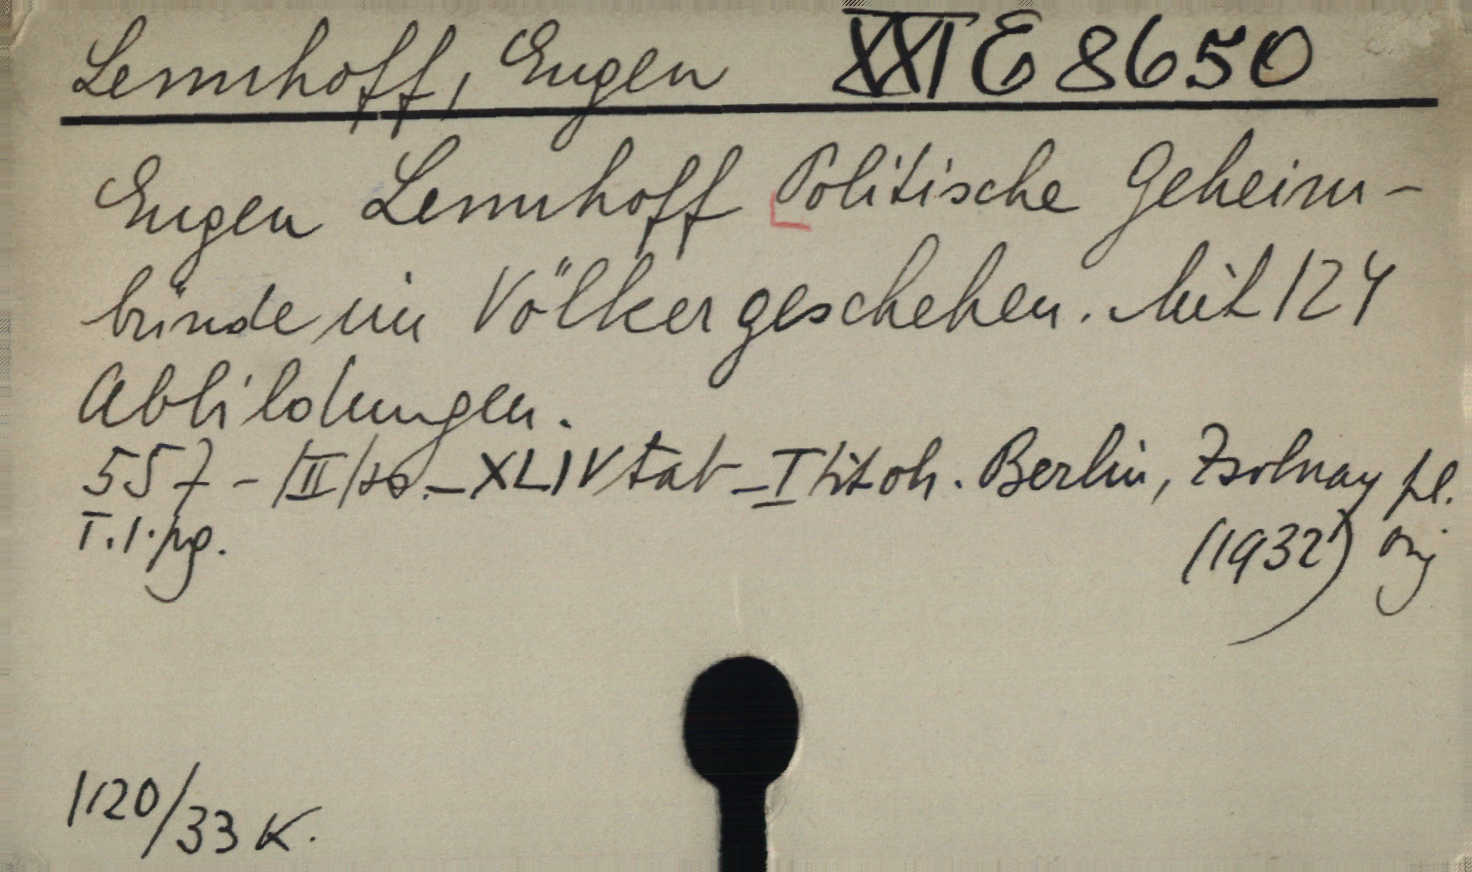 Lennhoff, Eugen XXI E 8650
Eugen Lennhoff Politische Geheim-
bünde im Völkergeschehen. Mit 124
Abbildungen.
557 - /II/ - XLIV tab - I Berlin, Zsolnay pl.
I. 1. pg. (1932)
1120/33 K.